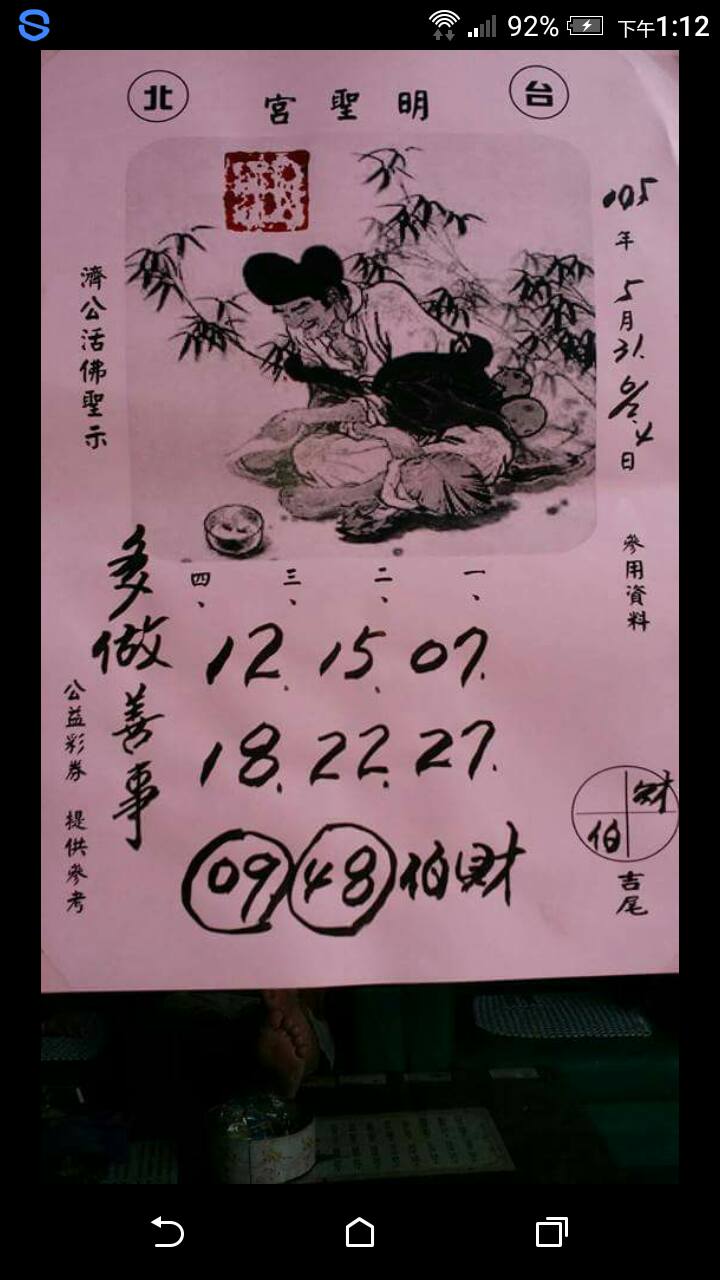 92% 下午1:12
北 明聖宮 台
105年5月31. 6/2.4日
參用資料
濟公活佛聖示
一、 二、 三、 四、
07. 15. 12.
27. 22. 18.
09 48 伯財
多做善事
公益彩券 提供參考
財
伯
吉尾